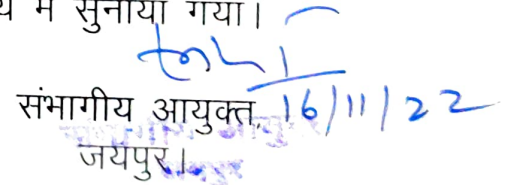 में सुनाया गया।
संभागीय आयुक्त, 16/11/22
जयपुर।